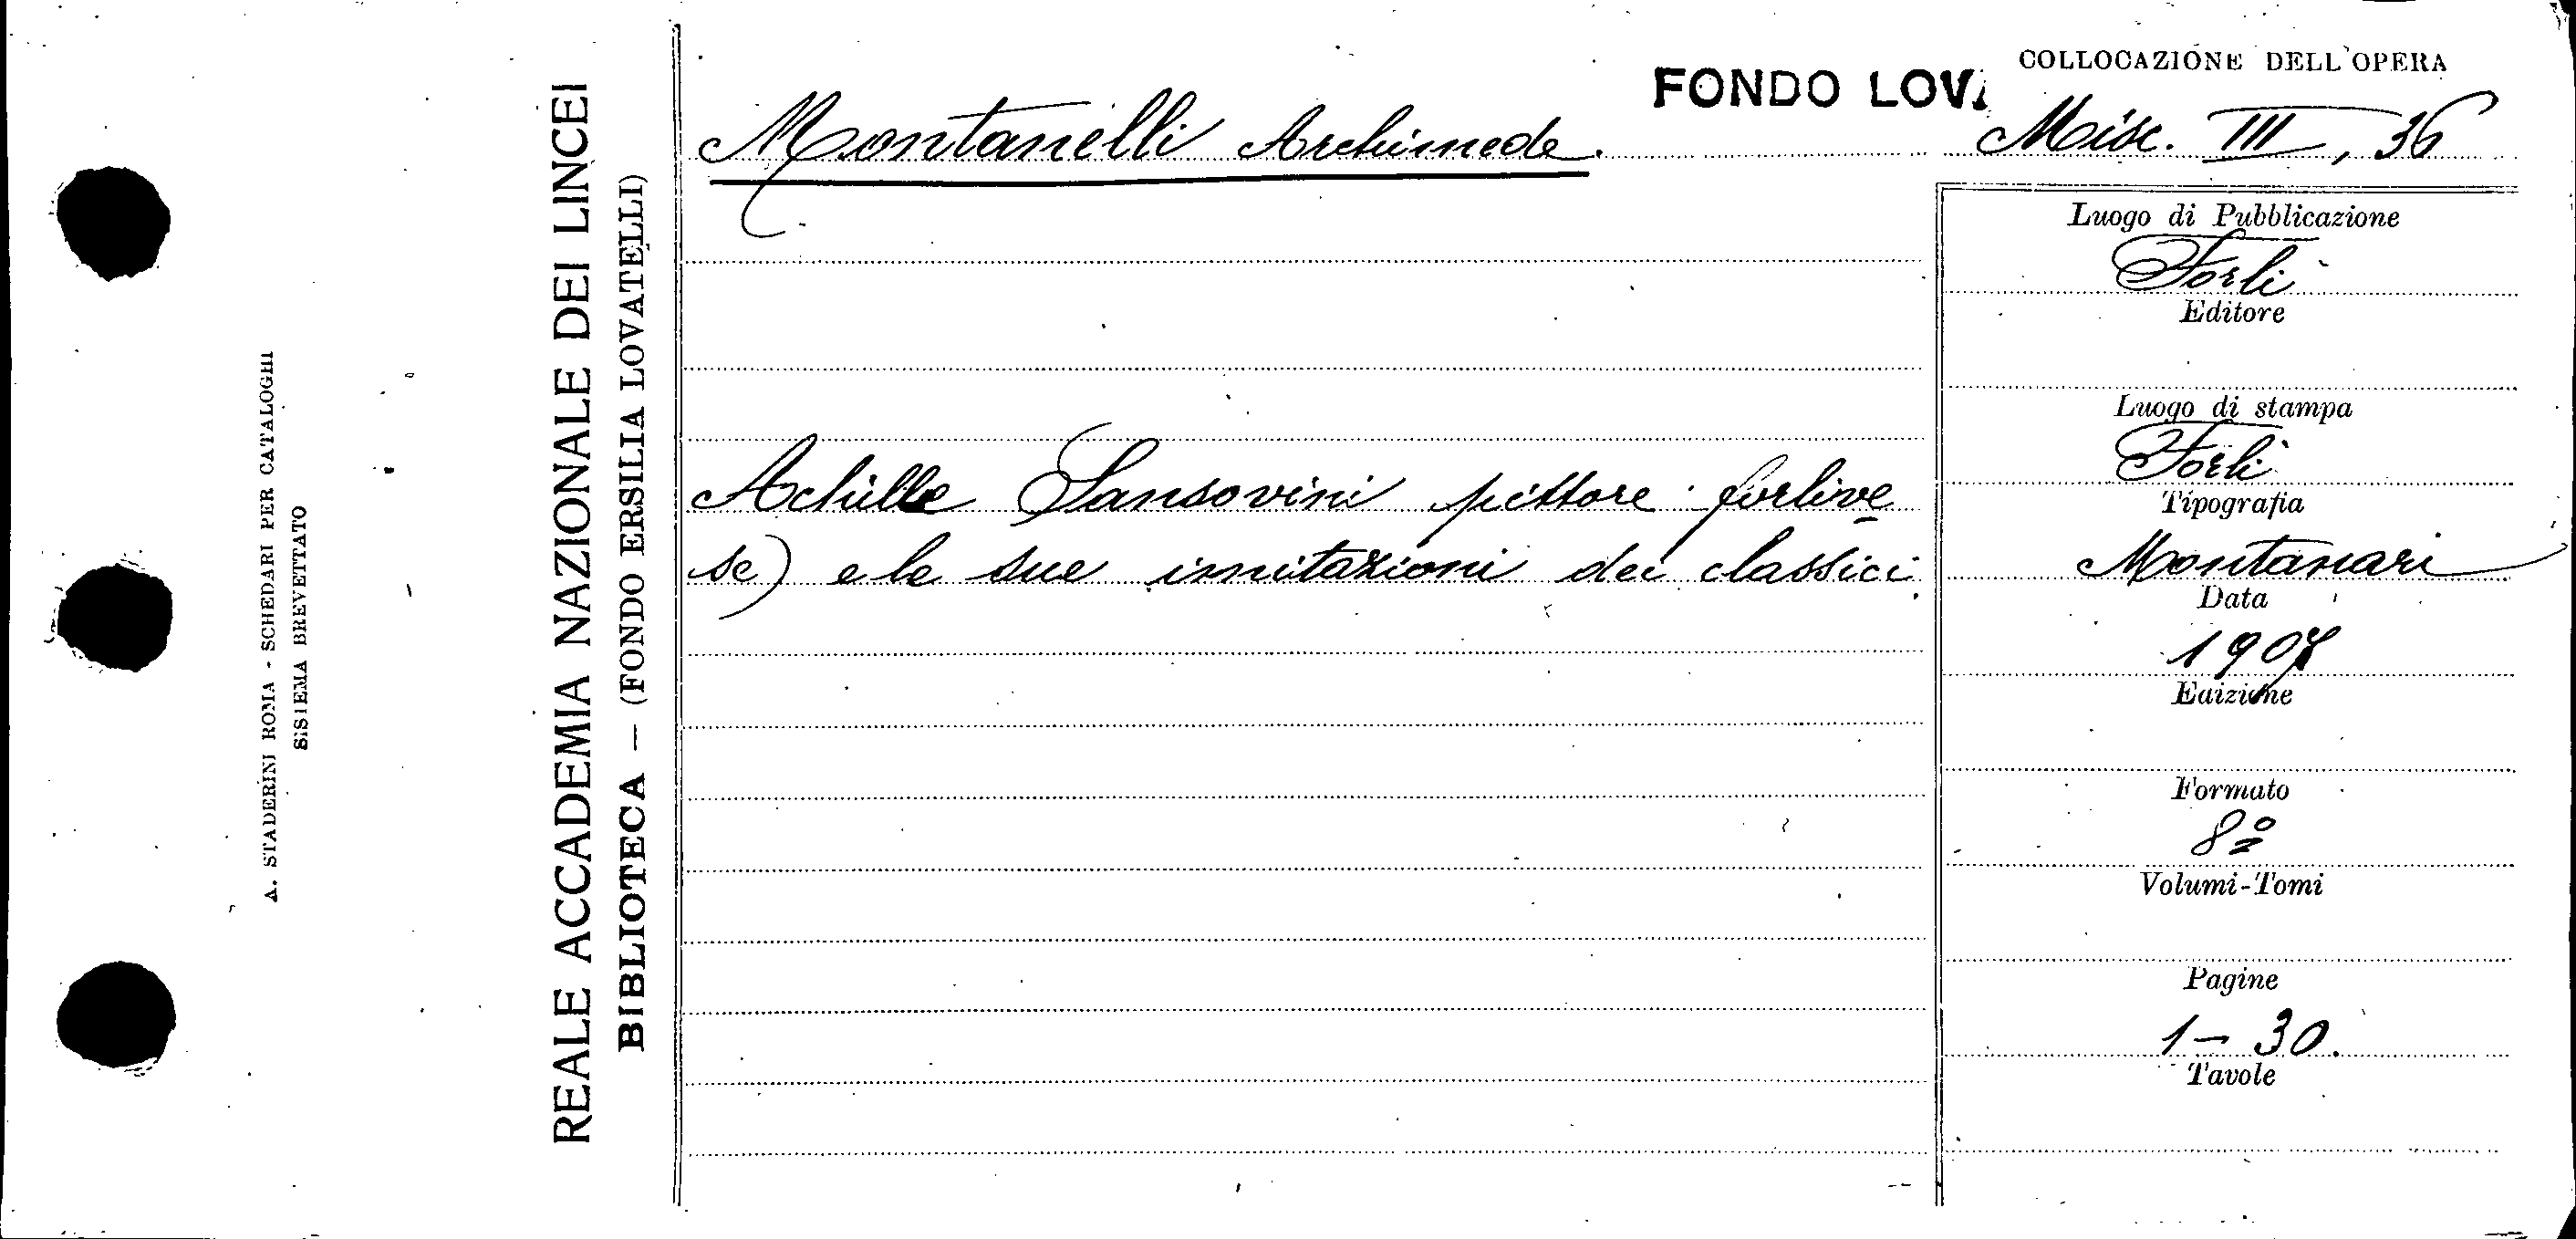 A. STADERINI ROMA - SCHEDARI PER CATALOGHI
SISTEMA BREVETTATO
REALE ACCADEMIA NAZIONALE DEI LINCEI
BIBLIOTECA — (FONDO ERSILIA LOVATELLI)
Montanelli Archimede.
FONDO LOV.
COLLOCAZIONE DELL'OPERA
Misc. III, 36
Achille Sansovini pittore forlive
se) e le sue imitazioni dei classici.
Luogo di Pubblicazione
Forlì
Editore
Luogo di stampa
Forlì
Tipografia
Montanari
Data
Edizione
Formato
8º
Volumi-Tomi
Pagine
1 - 30.
Tavole